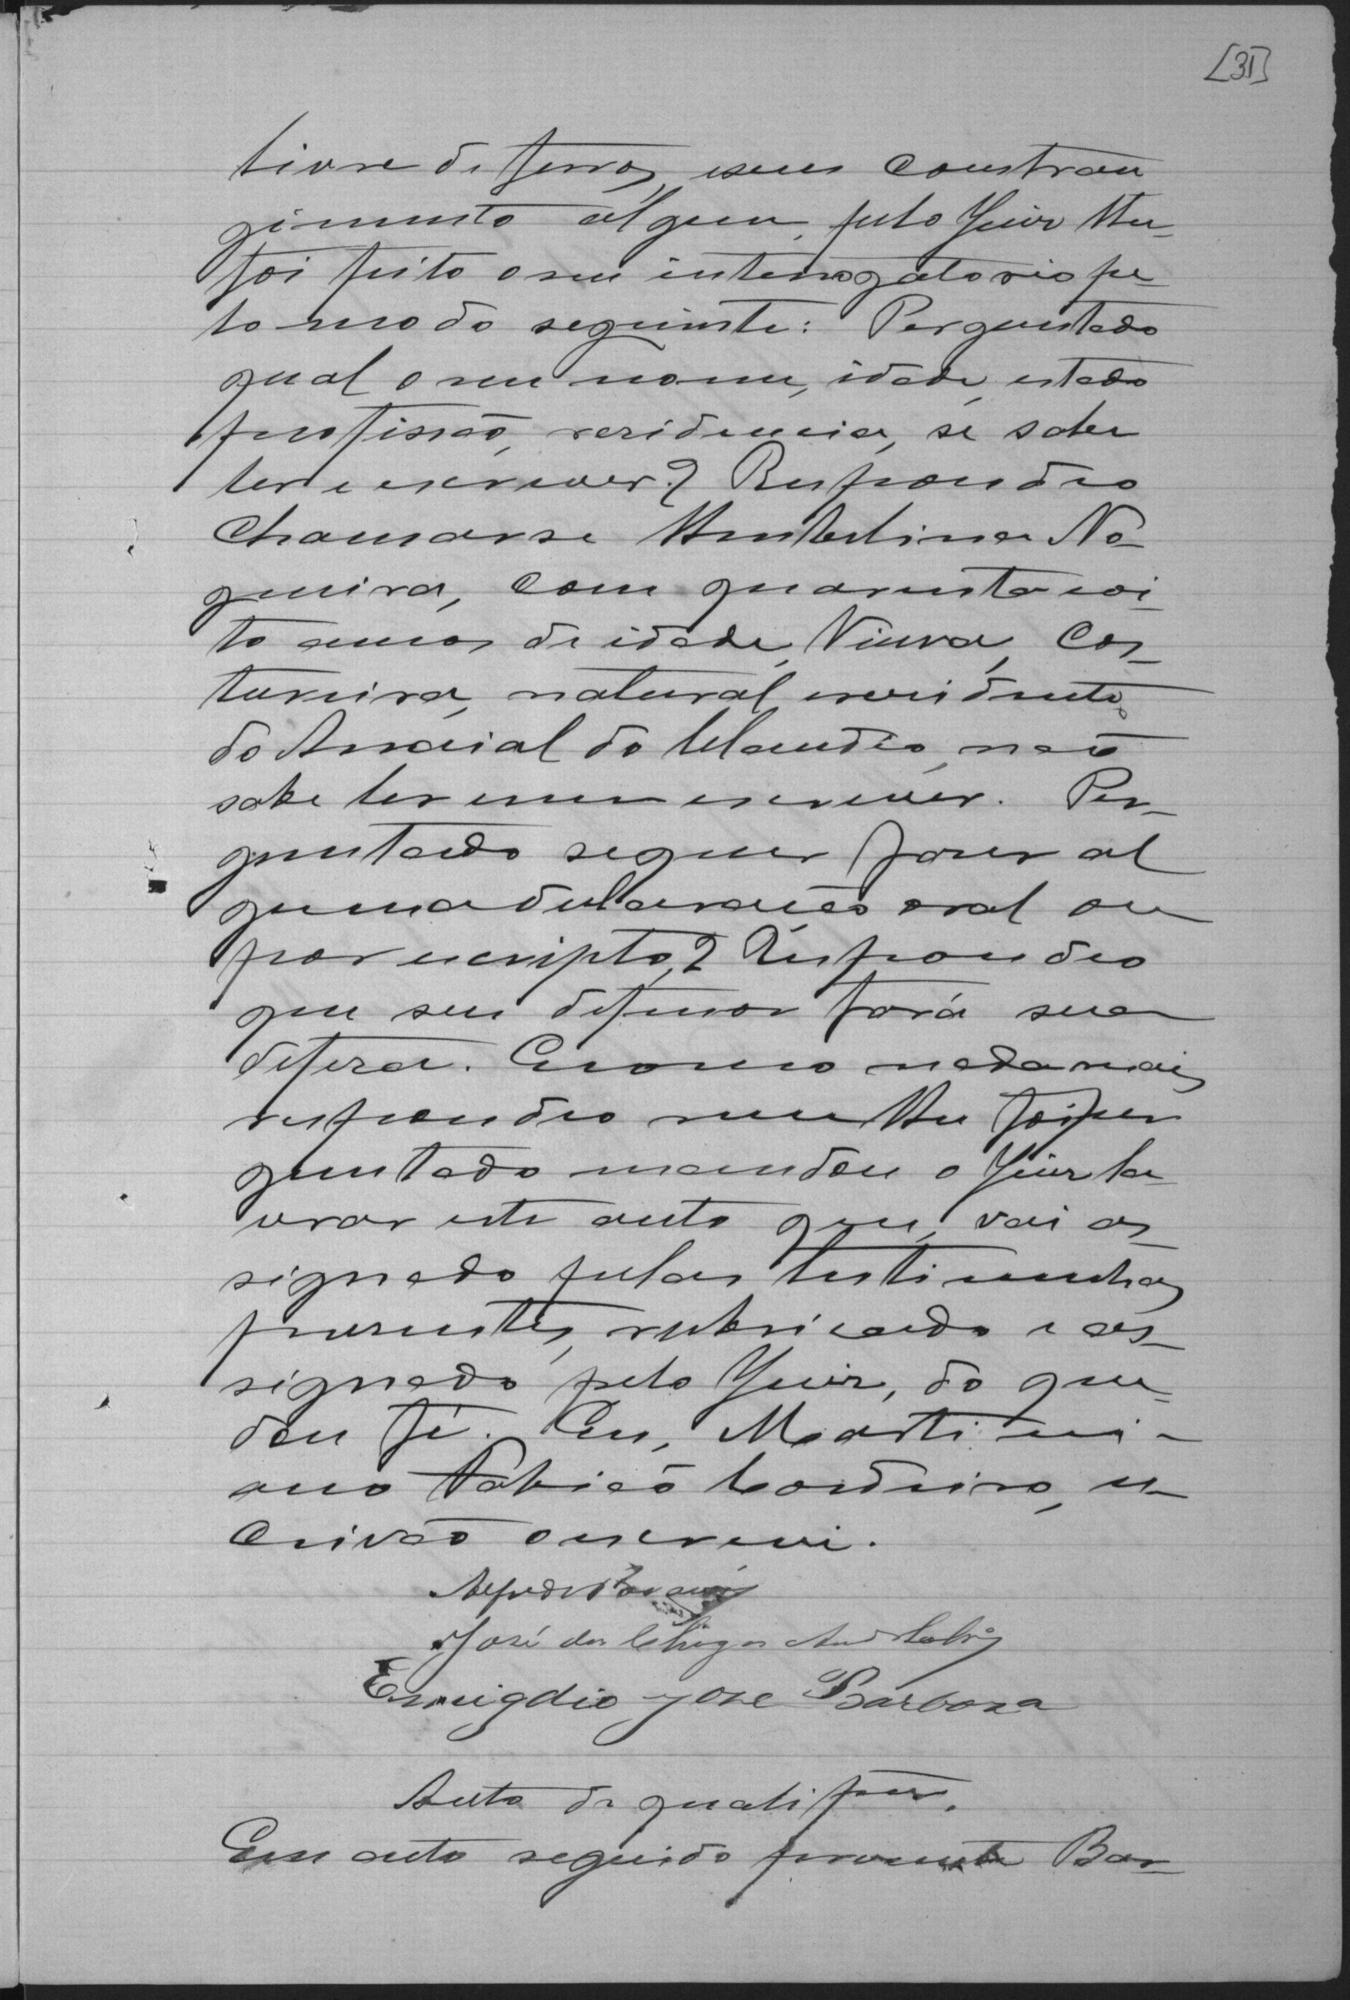 [31]
livre de ferros, e sem constran
gimento algum, pelo Juiz lhe
foi feito o seu interrogatorio pe-
lo modo seguinte: Perguntado
qual o seu nome, idade, estado
profissão, residencia, se sabe
ler e escrever? Respondeo
chamar-se Umbelina No-
gueira, com quarenta e oi-
to annos de idade, Viuva, Cos-
tureira, natural e residente
do Arraial do Claudio, não
sabe ler e nem escrever. Per-
guntado se quer fazer al
guma declaração oral ou
por escripto? Respondeo
que seu defensor fará sua
defeza. E como nada mais
respondeo nem lhe foi per
guntado mandou o Juiz la-
vrar este auto que, vai as-
signado pelas testimunhas
presentes, rubricado e as-
signado pelo Juiz, do que
dou fé. Eu, Martini-
ano Fabião Cordeiro, es-
crivão o escrevi.
José das Chagas
Emigdio Jose Barboza
Auto de qualifçam.
Em acto seguido presente Bar-